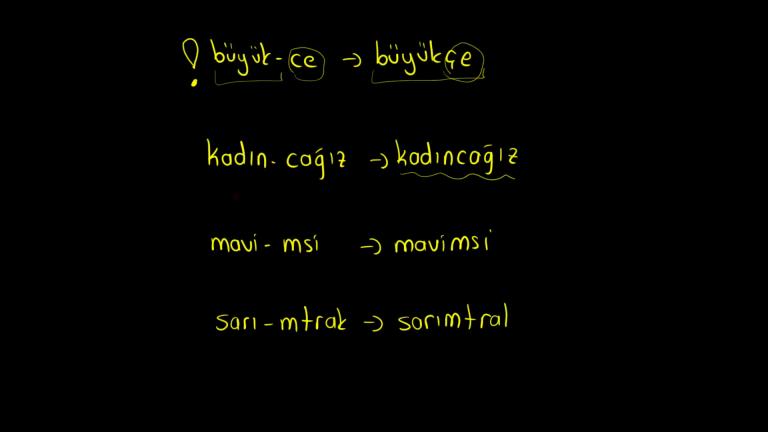 ! büyük-ce → büyükçe
kadın-cağız → kadıncağız
mavi-msi → mavimsi
sarı-mtrak → sarımtral